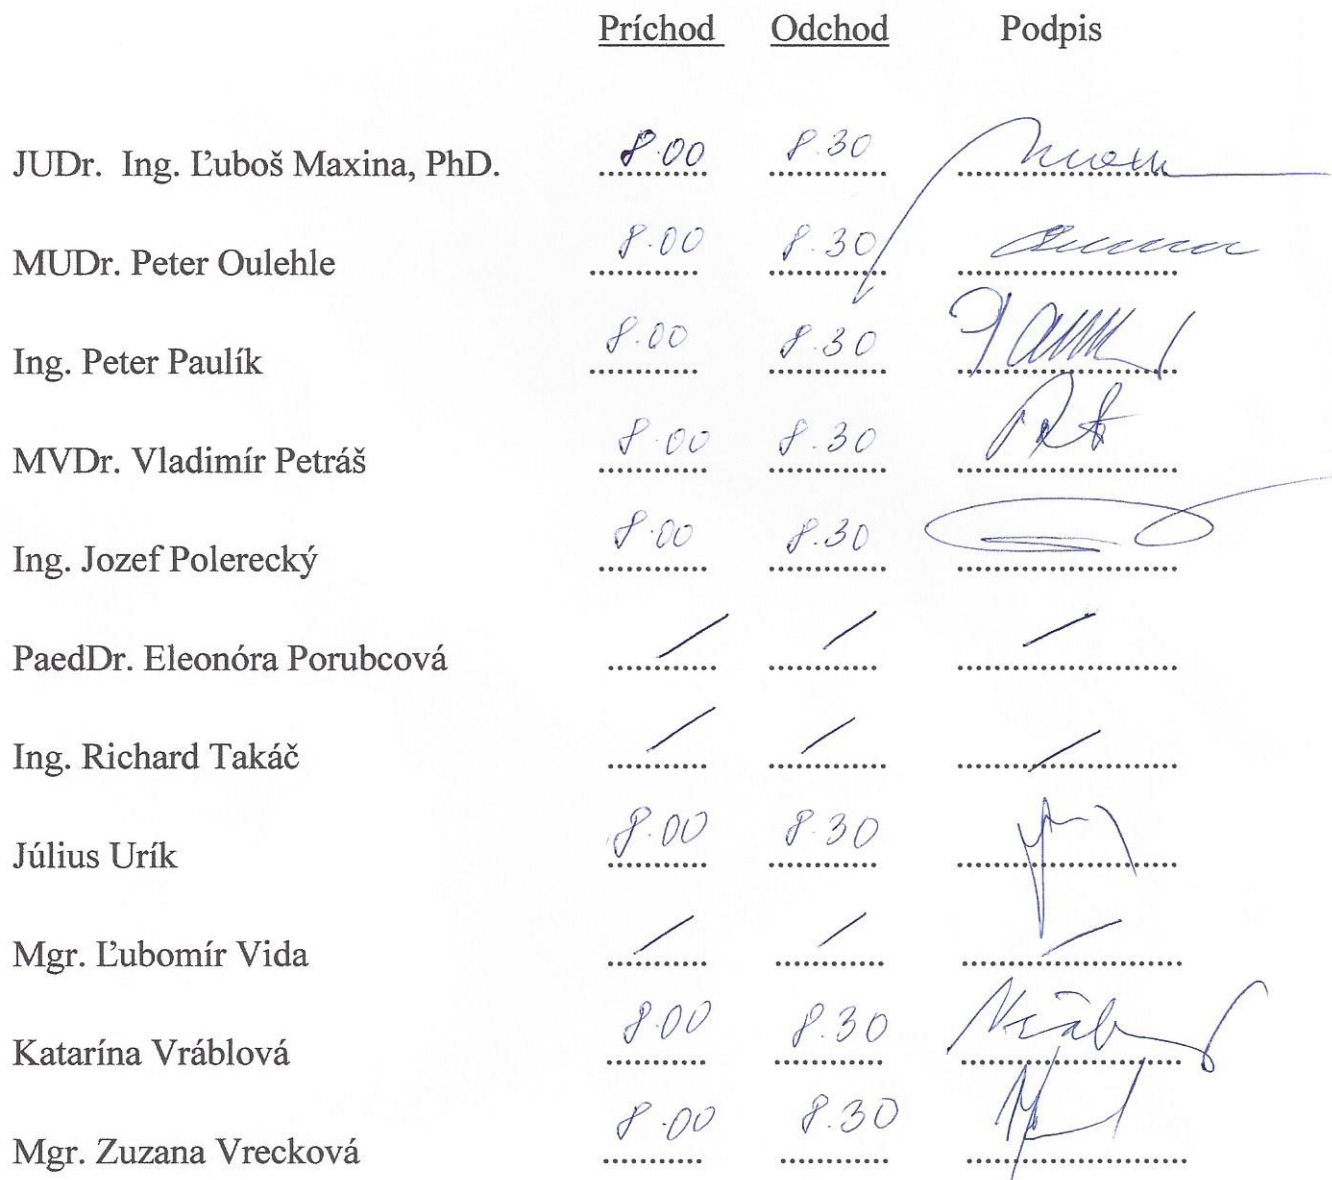 Príchod Odchod Podpis
JUDr. Ing. Ľuboš Maxina, PhD. 8.00 8.30
MUDr. Peter Oulehle 8.00 8.30
Ing. Peter Paulík 8.00 8.30
MVDr. Vladimír Petráš 8.00 8.30
Ing. Jozef Polerecký 8.00 8.30
PaedDr. Eleonóra Porubcová / / /
Ing. Richard Takáč / / /
Július Urík 8.00 8.30
Mgr. Ľubomír Vida / / /
Katarína Vráblová 8.00 8.30
Mgr. Zuzana Vrecková 8.00 8.30